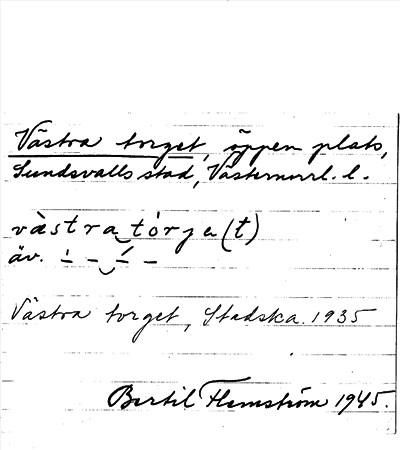 Västra torget, öppen plats,
Sundsvalls stad, Västernorrl. l.
västra tórje(t)
äv.
Västra torget, Stadska. 1935
Bertil Flemström 1945.